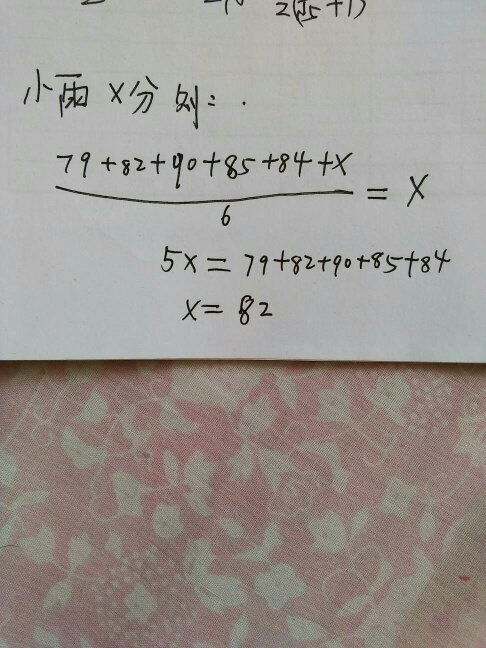 2(√5+1)
小雨 X分 则:.
79+82+90+85+84+X
6
= X
5X = 79+82+90+85+84
X = 82